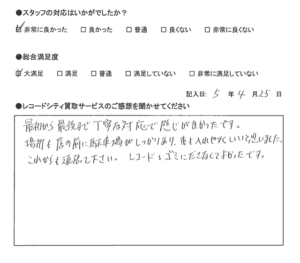 ●スタッフの対応はいかがでしたか？
☑ 非常に良かった □ 良かった □ 普通 □ 良くない □ 非常に良くない
●総合満足度
☑ 大満足 □ 満足 □ 普通 □ 満足していない □ 非常に満足していない
記入日: 5 年 4 月 25 日
●レコードシティ買取サービスのご感想を聞かせてください
最初から最後まで丁寧な対応で感じが良かったです。
場所も店の前に駐車場がしっかりあり、車も入れやすくいいと思いました。
これからも頑張って下さい。 レコードもゴミにださなくてよかったです。